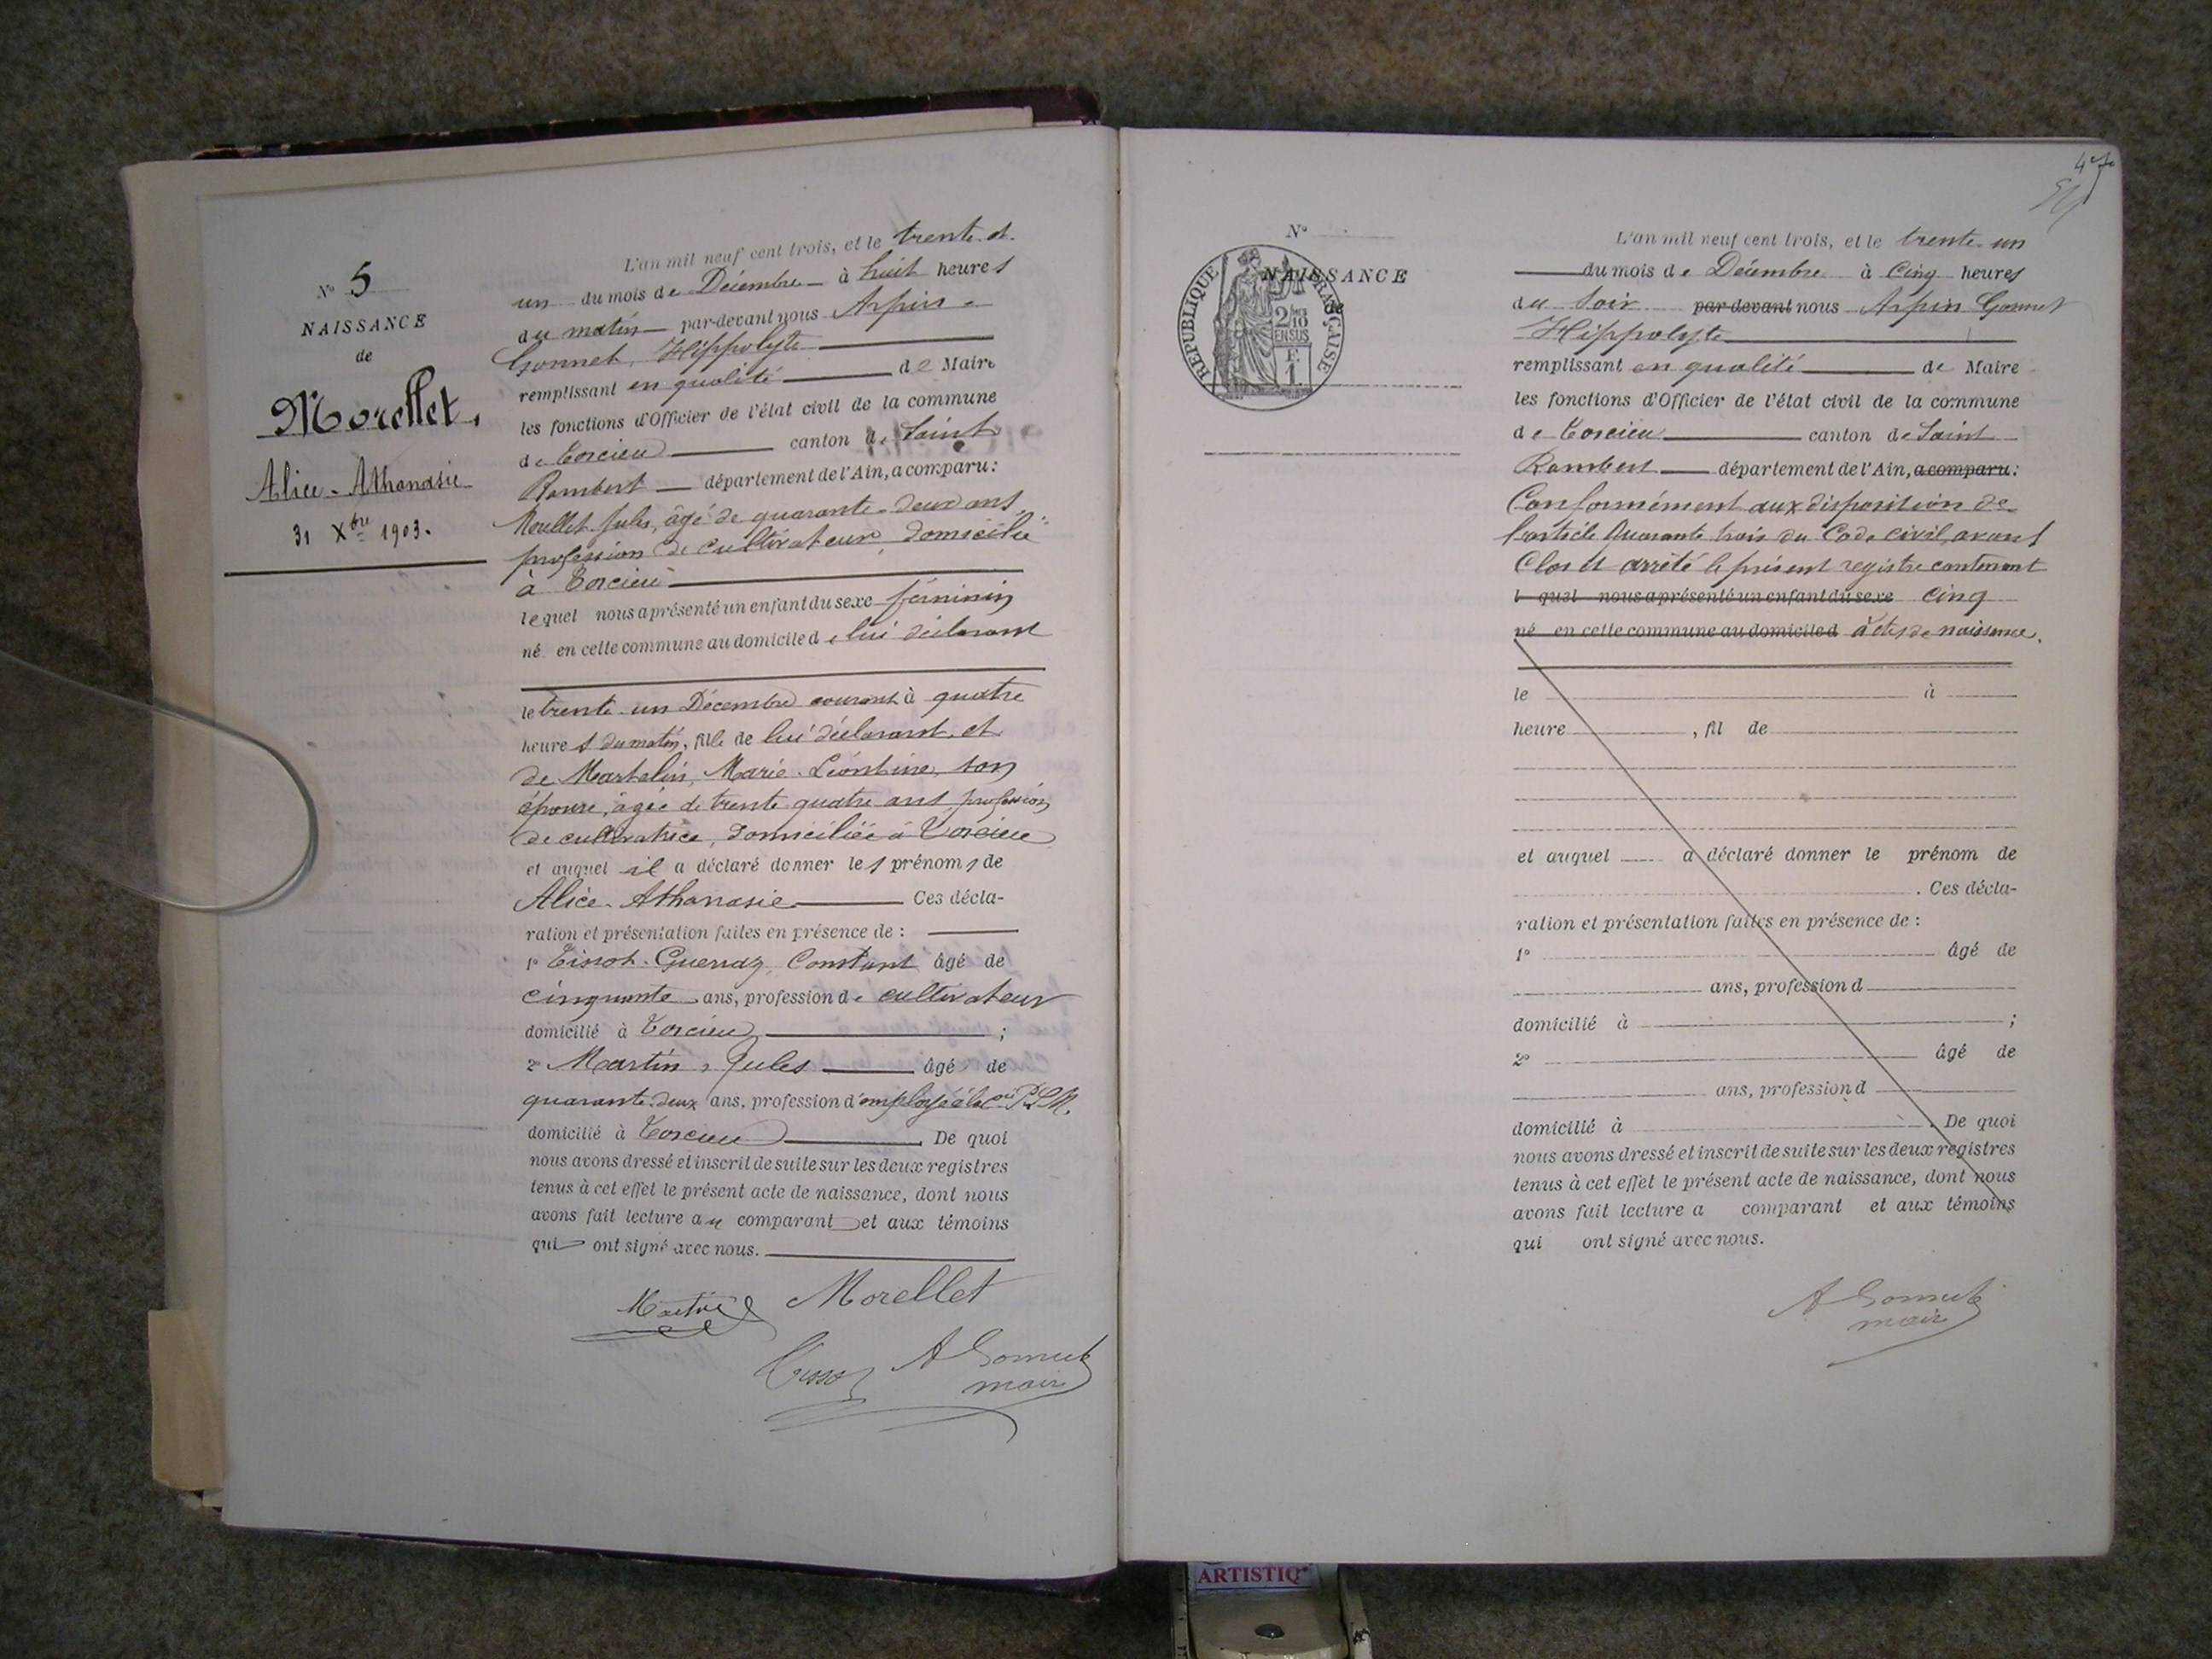 N° 5
NAISSANCE
de
Morellet,
Alice-Athanasie
31 Xbre 1903.
L'an mil neuf cent trois, et le trente et
un du mois de Décembre à huit heures
du matin par-devant nous Arpin-
Gonnet, Hippolyte
remplissant en qualité de Maire
les fonctions d'Officier de l'état civil de la commune
de Torcieu canton de Saint
Rambert département de l'Ain, a comparu:
Morellet Jules, âgé de quarante-deux ans,
profession de cultivateur, domicilié
à Torcieu
lequel nous a présenté un enfant du sexe féminin
né en cette commune au domicile de lui déclarant
le trente-un Décembre courant à quatre
heures du matin, fille de lui déclarant, et
de Martelin, Marie-Léontine, son
épouse, âgée de trente quatre ans, profession
de cultivatrice, domiciliée à Torcieu
et auquel il a déclaré donner les prénoms de
Alice-Athanasie Ces décla-
ration et présentation faites en présence de :
1° Tissot-Guerraz, Constant âgé de
cinquante ans, profession de cultivateur
domicilié à Torcieu ;
2° Martin, Jules âgé de
quarante-deux ans, profession d'employé à la Cie P.L.M.
domicilié à Torcieu. De quoi
nous avons dressé et inscrit de suite sur les deux registres
tenus à cet effet le présent acte de naissance, dont nous
avons fait lecture au comparant et aux témoins
qui ont signé avec nous.
Morellet
Tissot A Gonnet
maire
N°
NAISSANCE
de
REPUBLIQUE FRANÇAISE
2/10
EN SUS
F.
1.
L'an mil neuf cent trois, et le trente-un
du mois de Décembre à cinq heures
du soir par-devant nous Arpin Gonnet
Hippolyte
remplissant en qualité de Maire
les fonctions d'Officier de l'état civil de la commune
de Torcieu canton de Saint
Rambert département de l'Ain, a comparu:
Conformément aux disposition de
l'article quarante trois du Code civil, avons
Clos et arrêté le présent registre contenant
l quel nous a présenté un enfant du sexe cinq
né en cette commune au domicile d actes de naissance.
le à
heure , fil de
et auquel a déclaré donner le prénom de
. Ces décla-
ration et présentation faites en présence de :
1° âgé de
ans, profession d
domicilié à ;
2° âgé de
ans, profession d
domicilié à . De quoi
nous avons dressé et inscrit de suite sur les deux registres
tenus à cet effet le présent acte de naissance, dont nous
avons fait lecture a comparant et aux témoins
qui ont signé avec nous.
A Gonnet
maire
ARTISTIQ